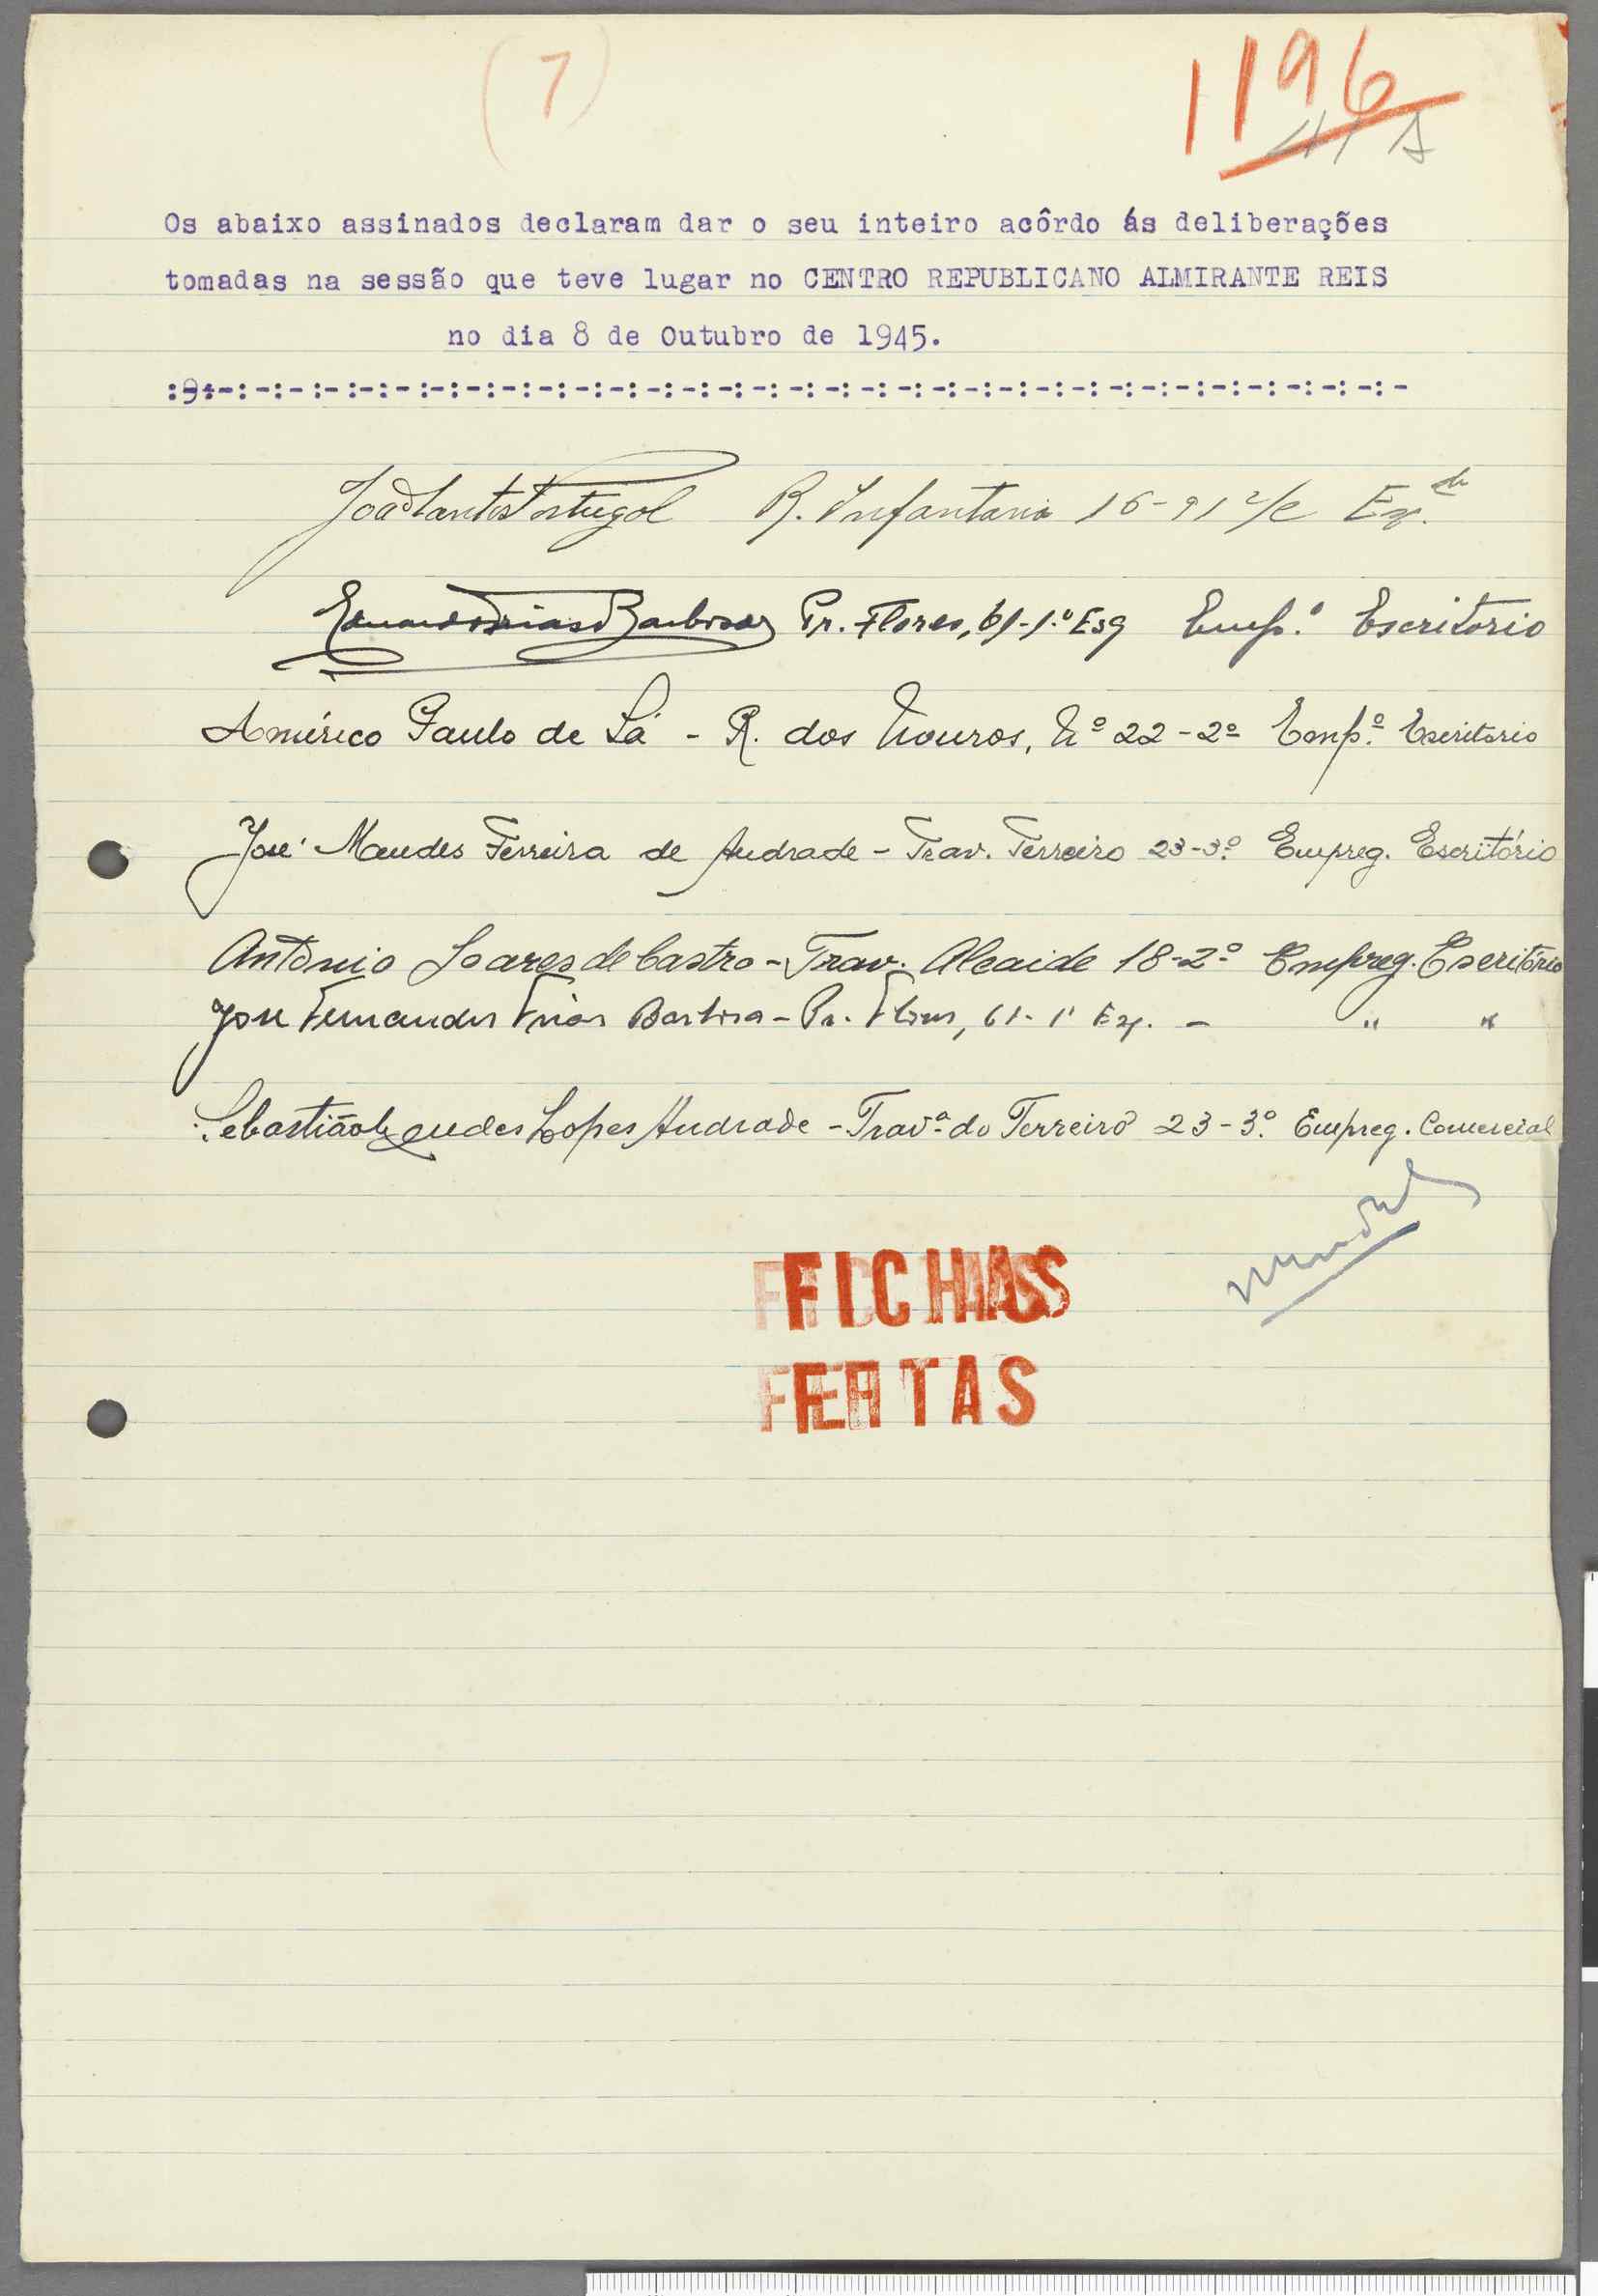 (7)
1196
Os abaixo assinados declaram dar o seu inteiro acôrdo ás deliberações
tomadas na sessão que teve lugar no CENTRO REPUBLICANO ALMIRANTE REIS
no dia 8 de Outubro de 1945.
:9:-:-:-:-:-:-:-:-:-:-:-:-:-:-:-:-:-:-:-:-:-:-:-:-:-:-:-:-:-:-:-:-:-:-
João Santos Portugal R. Infantaria 16-91 
Eduardo Frias Barbosa Pr. Flores, 61-1.º Esq Emp.º Escritorio
Américo Paulo de Sá - R. dos Mouros, Nº 22-2º Emp.º Escritorio
José Mendes Ferreira de Andrade - Trav. Terreiro 23-3.º Empreg. Escritório
António Soares de Castro - Trav. Alcaide 18-2º Empreg. Escritório
José Fernandes Frias Barbosa - Pr. Flores, 61-1º Esq. - " "
Sebastião Mendes Lopes Andrade - Trav.ª do Terreiro 23-3.º Empreg. Comercial
FICHAS
FEITAS